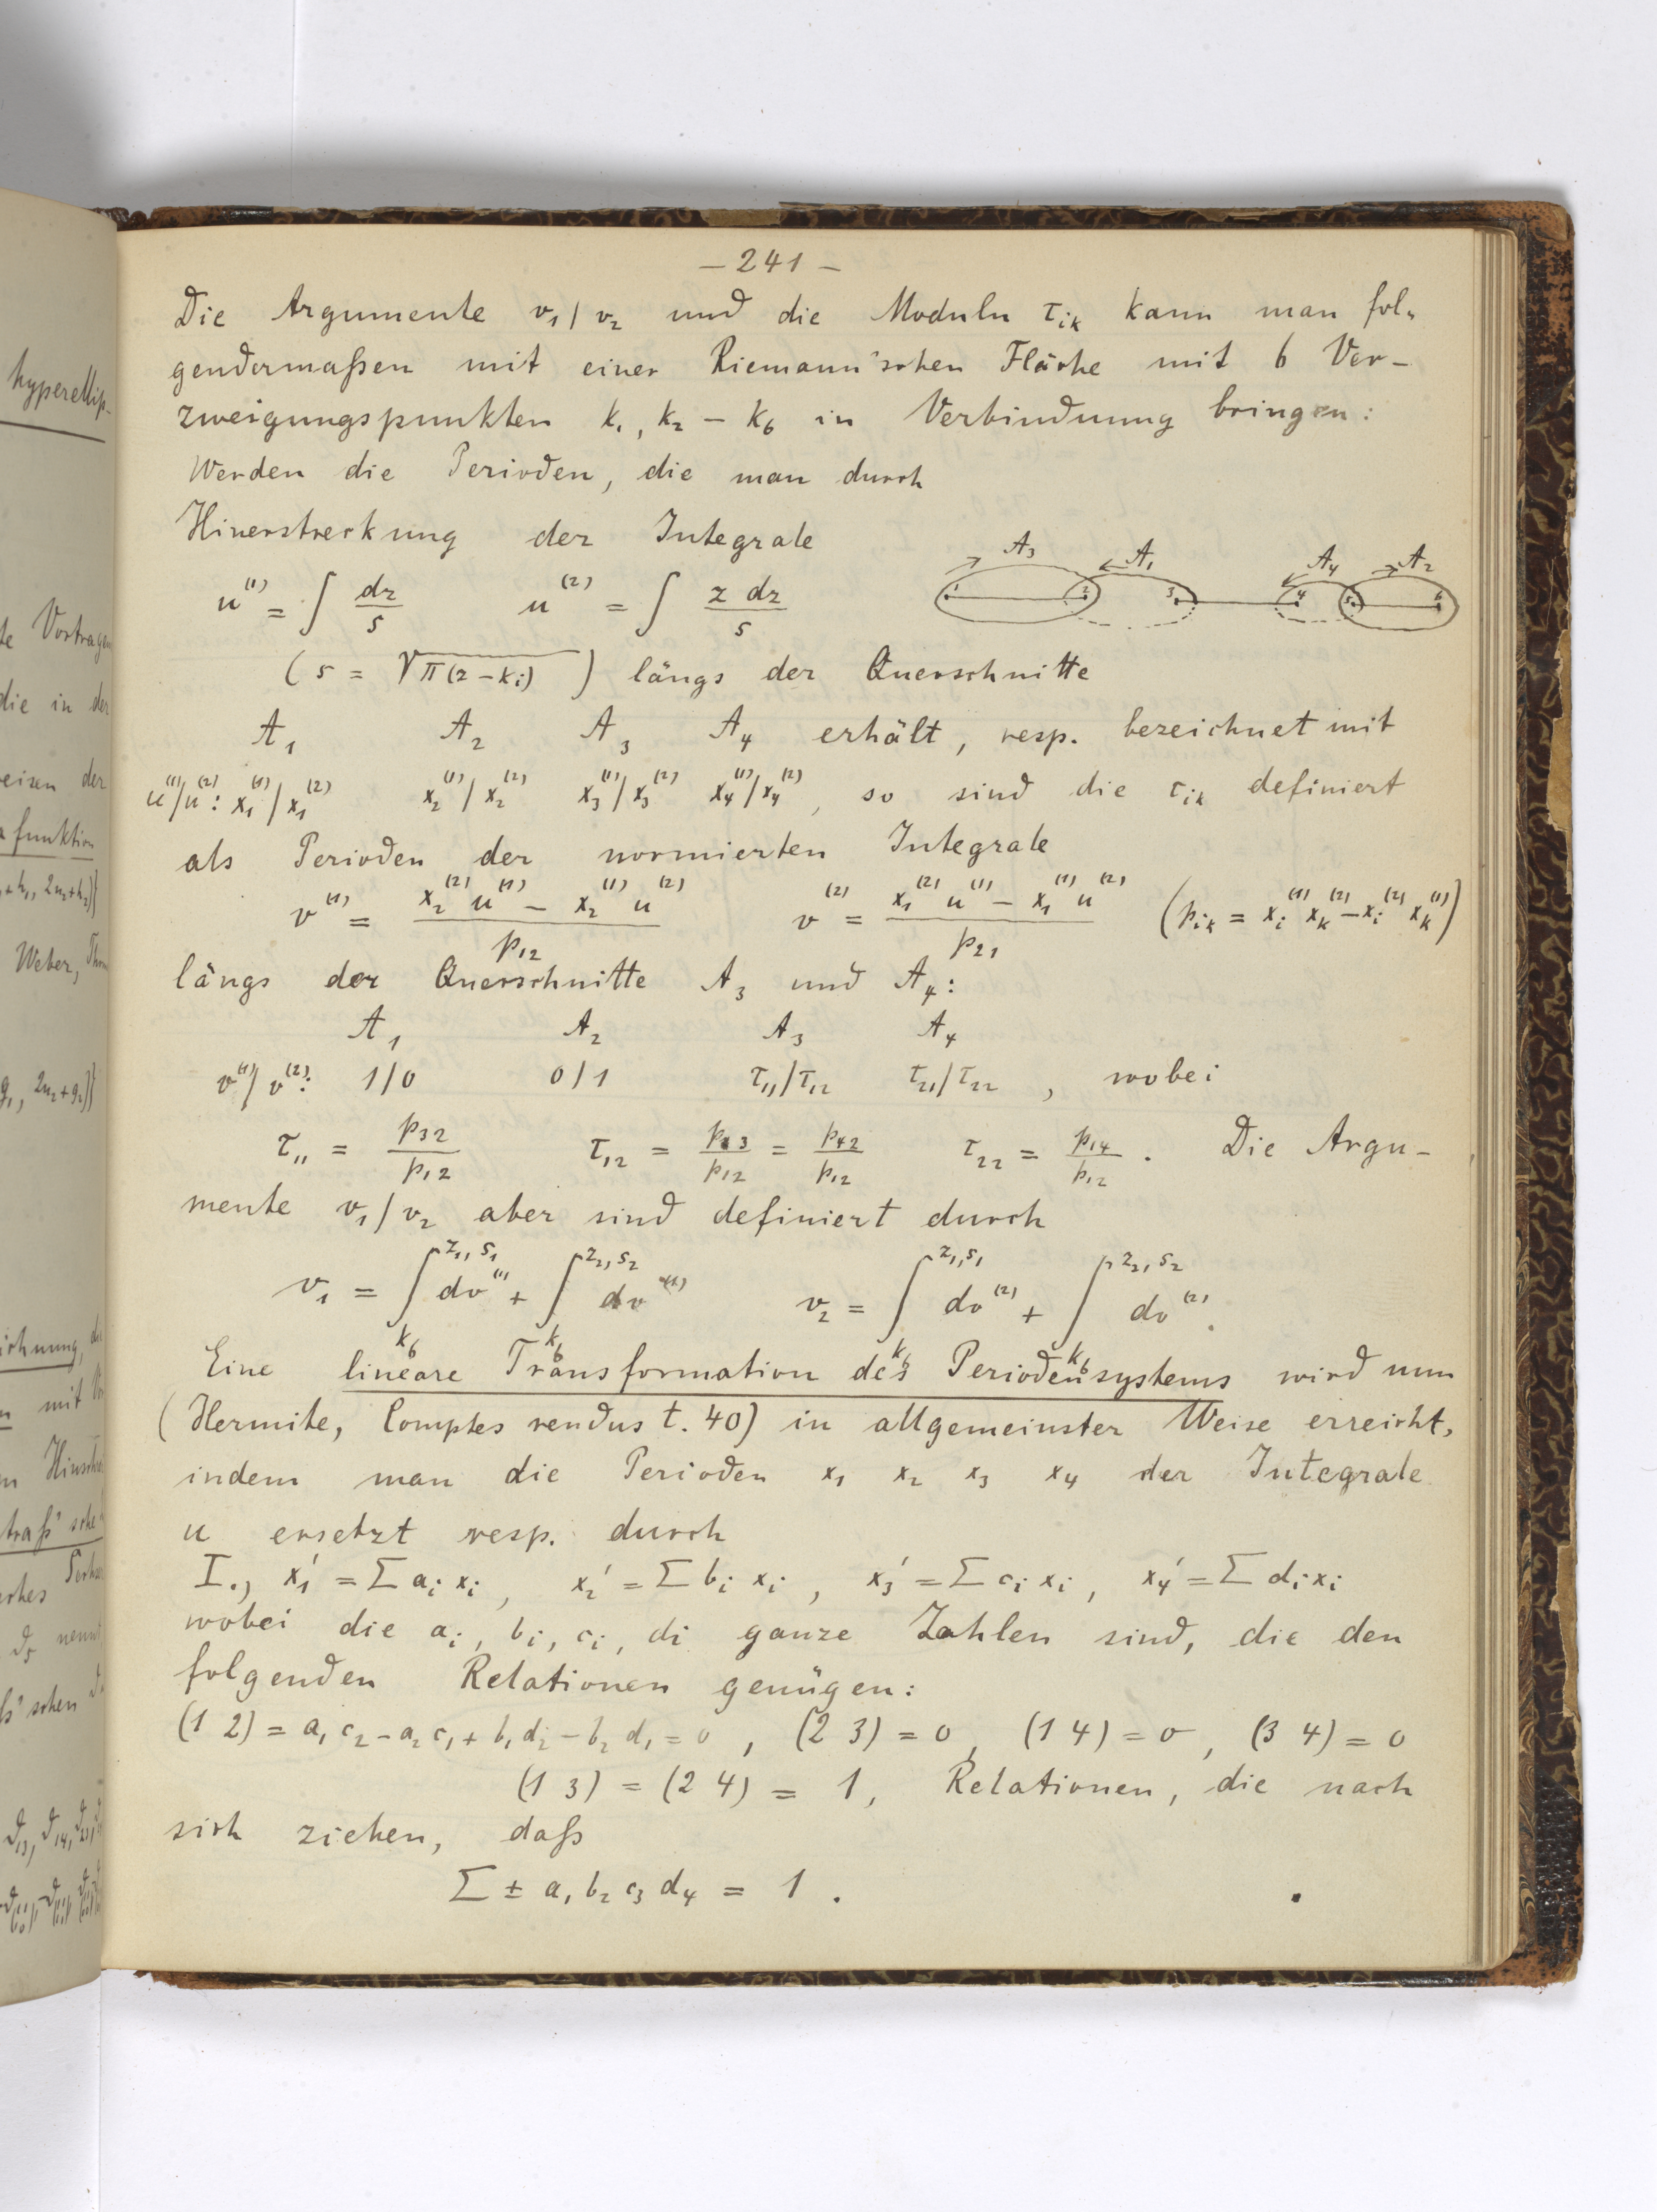 – 241 –
Die Argumente v₁/v₂ und die Moduln τ_{ik} kann man fol-
gendermaßen mit einer Riemann'schen Fläche mit 6 Ver-
zweigungspunkten k₁, k₂ – k₆ in Verbindung bringen:
Werden die Perioden, die man durch
Hinerstreckung der Integrale
A₃ A₁ A₄ A₂
1 2 3 4 5 6
u^{(1)} = ∫ dz/s u^{(2)} = ∫ z dz/s
(s = √π(z – k_i) ) längs der Querschnitte
A₁ A₂ A₃ A₄ erhält, resp. bezeichnet mit
u^{(1)}/u^{(2)}: x₁^{(1)}/x₁^{(2)} x₂^{(1)}/x₂^{(2)} x₃^{(1)}/x₃^{(2)} x₄^{(1)}/x₄^{(2)}, so sind die τ_{ik} definiert
als Perioden der normierten Integrale
v^{(1)} = (x₂^{(2)} u^{(1)} – x₂^{(1)} u^{(2)})/p₁₂ v^{(2)} = (x₁^{(2)} u^{(1)} – x₁^{(1)} u^{(2)})/p₂₁ (p_{ik} = x_i^{(1)} x_k^{(2)} – x_i^{(2)} x_k^{(1)})
längs der Querschnitte A₃ und A₄:
A₁ A₂ A₃ A₄
v^{(1)}/v^{(2)}: 1/0 0/1 τ₁₁/τ₁₂ τ₂₁/τ₂₂ , wobei
τ₁₁ = p₃₂/p₁₂ τ₁₂ = p₁₃/p₁₂ = p₄₂/p₁₂ τ₂₂ = p₁₄/p₁₂ . Die Argu-
mente v₁/v₂ aber sind definiert durch
v₁ = ∫_{k₆}^{z₁, s₁} dv^{(1)} + ∫_{k₆}^{z₂, s₂} dv^{(1)} v₂ = ∫_{k₆}^{z₁, s₁} dv^{(2)} + ∫_{k₆}^{z₂, s₂} dv^{(2)}.
Eine lineare Transformation des Periodensystems wird nun
(Hermite, Comptes rendus t. 40) in allgemeinster Weise erreicht,
indem man die Perioden x₁ x₂ x₃ x₄ der Integrale
u ersetzt resp. durch
I.) x₁' = Σ a_i x_i , x₂' = Σ b_i x_i , x₃' = Σ c_i x_i , x₄' = Σ d_i x_i
wobei die a_i, b_i, c_i, d_i ganze Zahlen sind, die den
folgenden Relationen genügen:
(1 2) = a₁ c₂ – a₂ c₁ + b₁ d₂ – b₂ d₁ = 0 , (2 3) = 0, (1 4) = 0, (3 4) = 0
(1 3) = (2 4) = 1, Relationen, die nach
sich ziehen, daß
Σ ± a₁ b₂ c₃ d₄ = 1 .